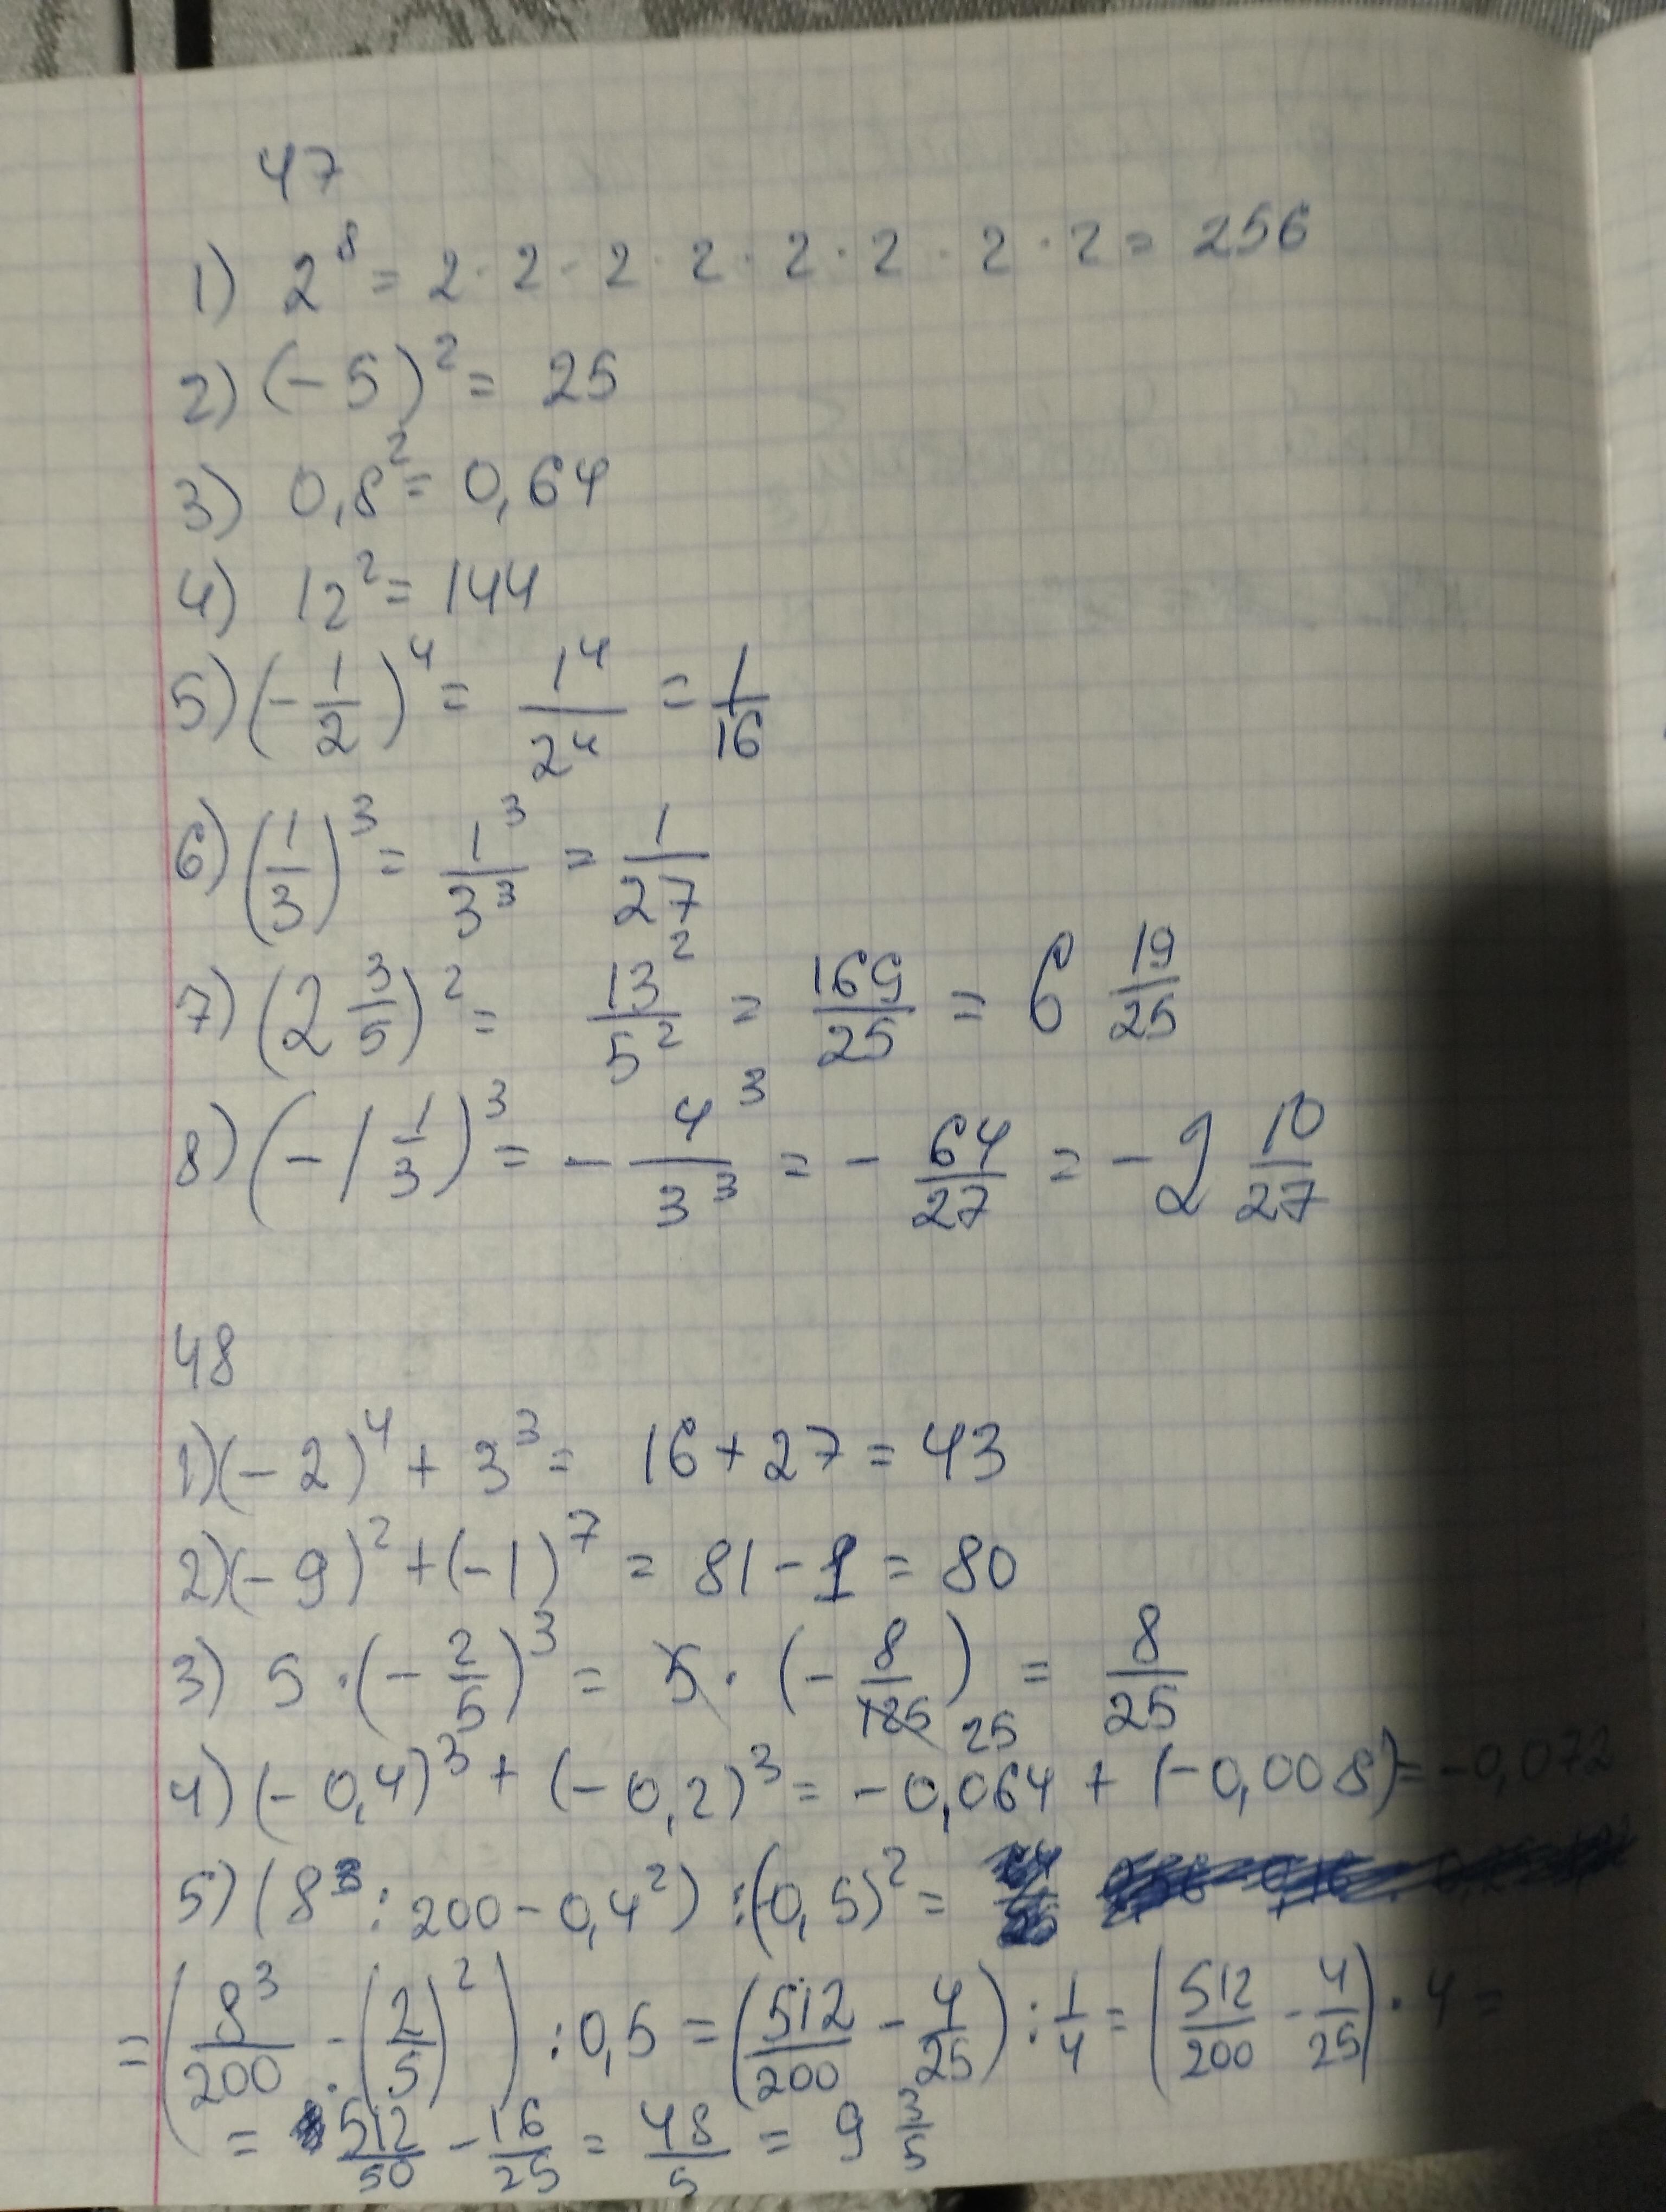 47
1) 2⁸ = 2 · 2 · 2 · 2 · 2 · 2 · 2 · 2 = 256
2) (-5)² = 25
3) 0,8² = 0,64
4) 12² = 144
5) (-1/2)⁴ = 1⁴/2⁴ = 1/16
6) (1/3)³ = 1³/3³ = 1/27
7) (2 3/5)² = 13²/5² = 169/25 = 6 19/25
8) (-1 1/3)³ = - 4³/3³ = - 64/27 = -2 10/27
48
1) (-2)⁴ + 3³ = 16 + 27 = 43
2) (-9)² + (-1)⁷ = 81 - 1 = 80
3) 5 · (-2/5)³ = 5 · (-8/125) 25 = 8/25
4) (-0,4)³ + (-0,2)³ = -0,064 + (-0,008) = -0,072
5) (8³ : 200 - 0,4²) : (0,5)² =
= (8³/200 - (2/5)²) : 0,5 = (512/200 - 4/25) : 1/4 = (512/200 - 4/25) · 4 =
= 512/50 - 16/25 = 48/5 = 9 3/5